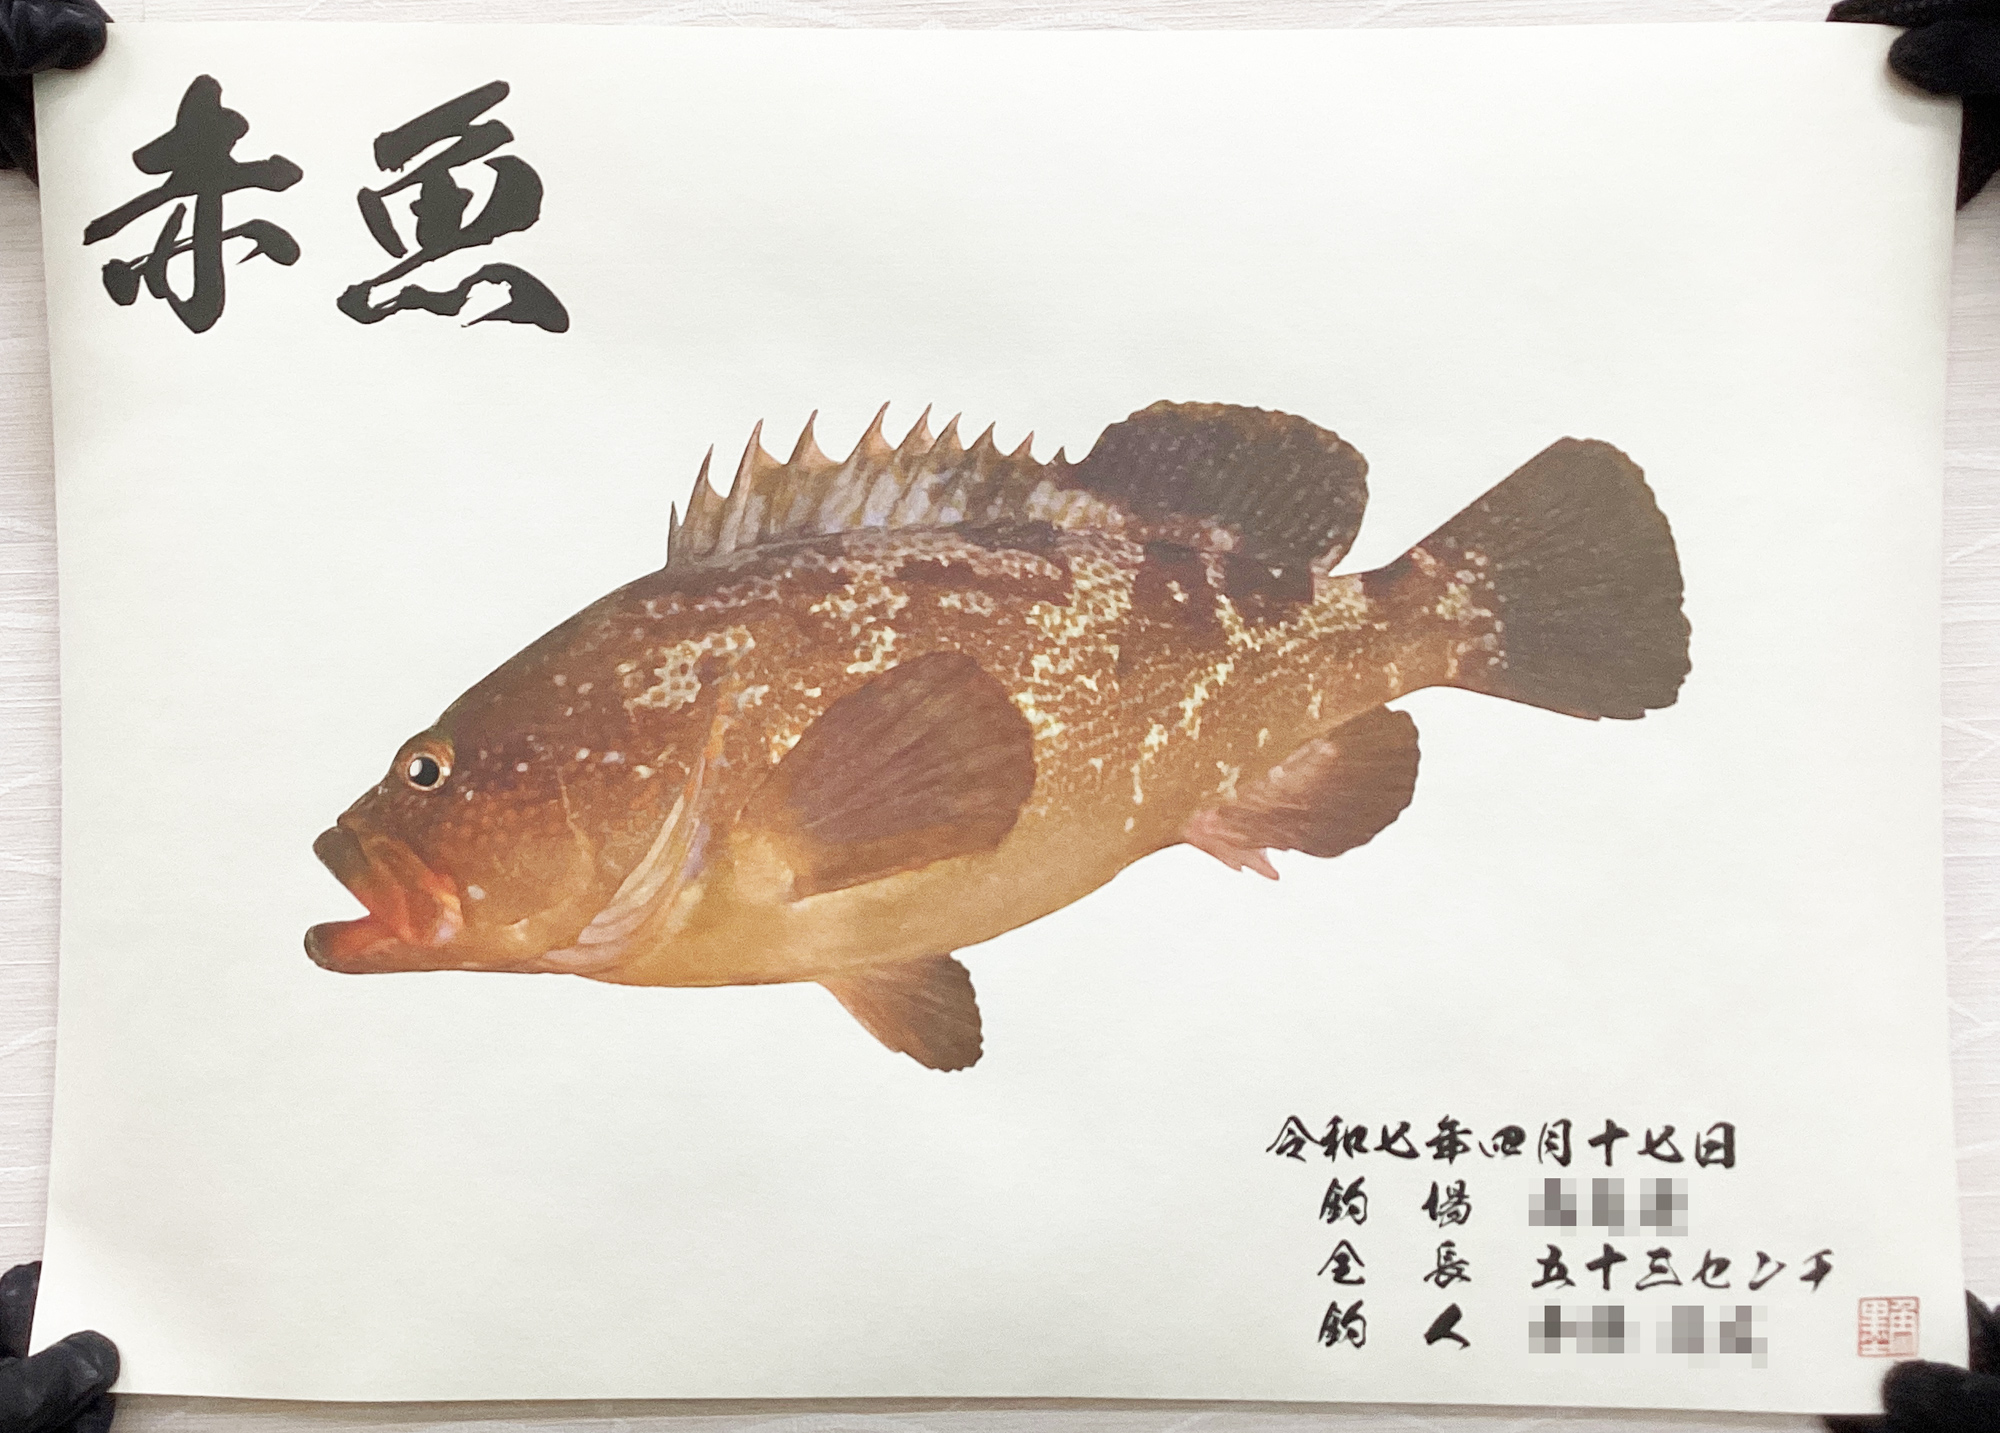 赤魚
令和七年四月十七日
釣場
全長 五十三センチ
釣人